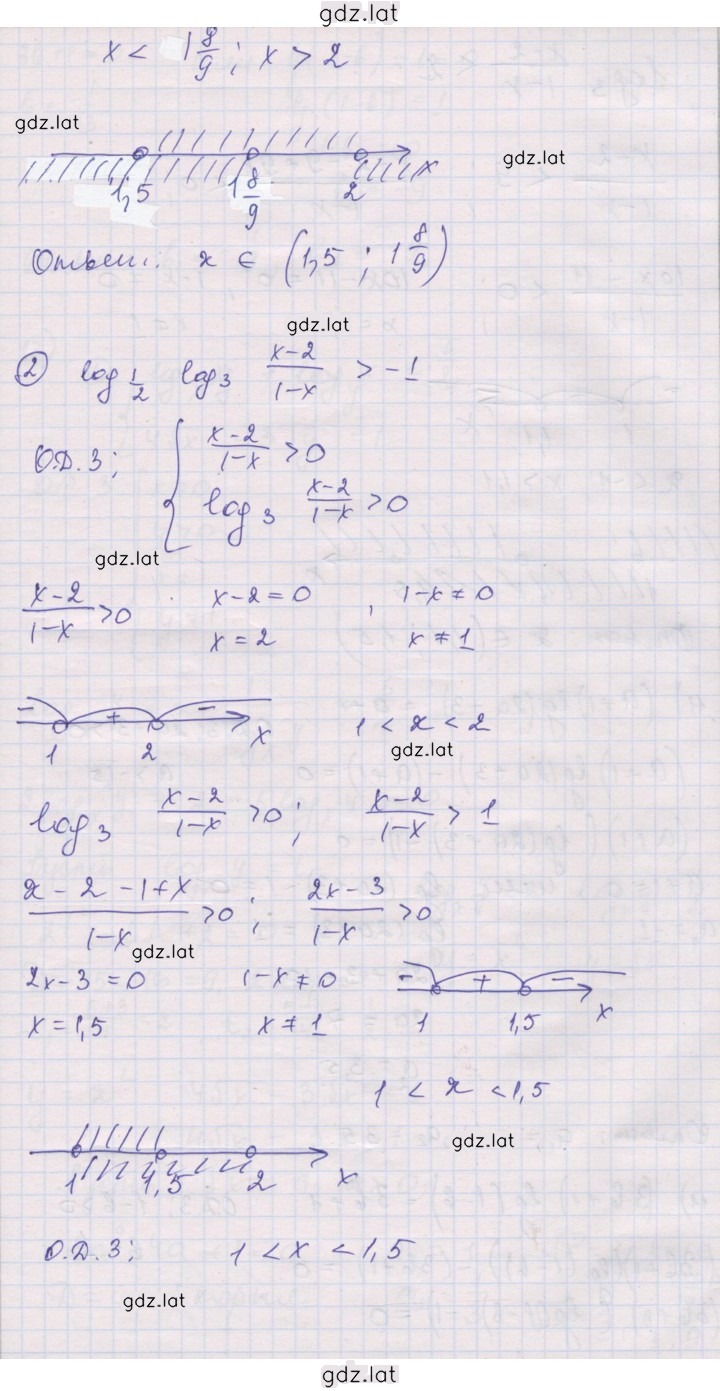 gdz.lat
x < 1 8/9 ; x > 2
gdz.lat
gdz.lat
1,5 1 8/9 2 x
Ответ: x ∈ (1,5 ; 1 8/9)
gdz.lat
② log 1/2 log 3 (x-2)/(1-x) > -1
О.Д.З; { (x-2)/(1-x) > 0
log 3 (x-2)/(1-x) > 0
gdz.lat
(x-2)/(1-x) > 0 x-2=0 , 1-x≠0
x=2 x≠1
- + -
1 2 x 1 < x < 2
gdz.lat
log 3 (x-2)/(1-x) > 0 ; (x-2)/(1-x) > 1
(x-2-1+x)/(1-x) > 0 ; (2x-3)/(1-x) > 0
gdz.lat
2x-3=0 1-x≠0 - + -
x=1,5 x≠1 1 1,5 x
1 < x < 1,5
gdz.lat
1 1,5 2 x
О.Д.З; 1 < x < 1,5
gdz.lat
gdz.lat